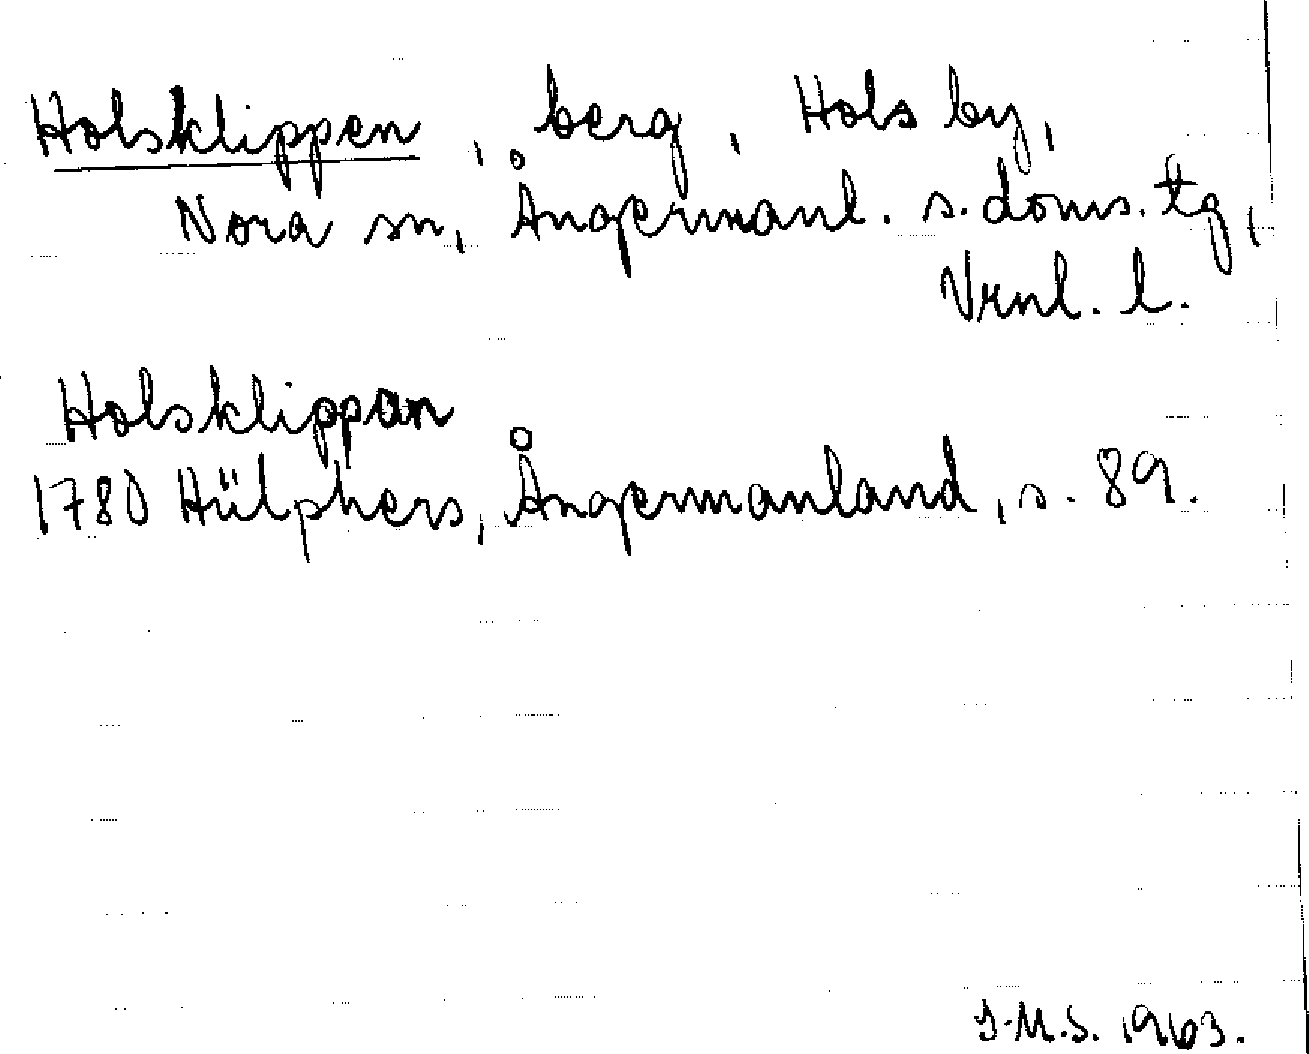 Holsklippen, berg, Hols by,
Nora sn, Ångermanl. s. doms. tg,
Vrnl. l.
Holsklippan
1780 Hülphers, Ångermanland, s. 89.
J.M.S. 1963.